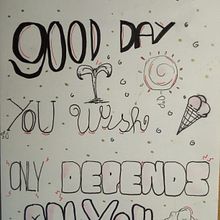 GOOD DAY
YOU Wish
ONLY DEPENDS
ON YOU